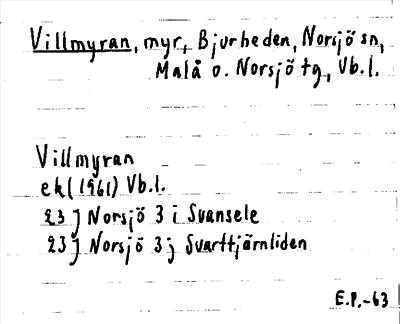 Villmyran, myr, Bjurheden, Norsjö sn,
Malå o. Norsjö tg, Vb.l.
Villmyran
ek (1961) Vb.l.
23J Norsjö 3 i Svansele
23J Norsjö 3 j Svarttjärnliden
E.P.-63